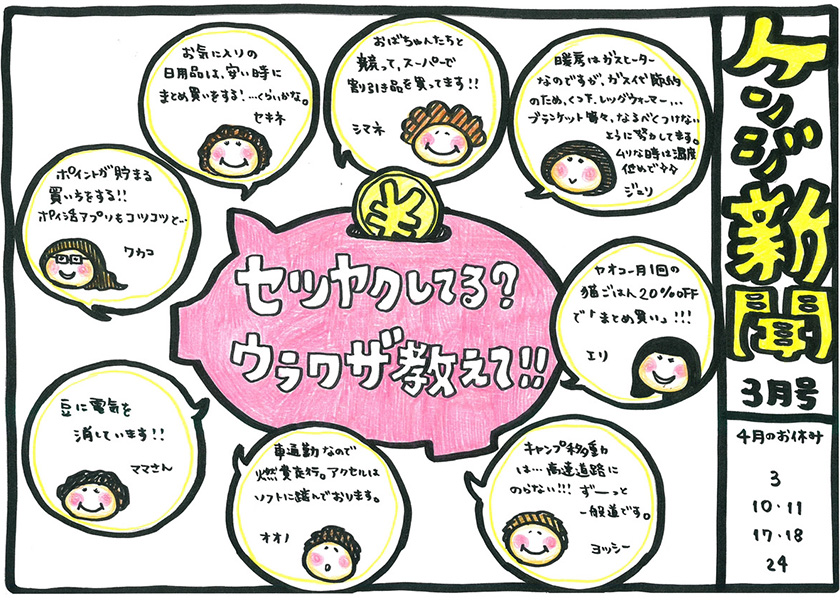 ケンジ新聞
3月号
4月のお休み
3
10・11
17・18
24
セツヤクしてる?
ウラワザ教えて!!
暖房はガスヒーター
なのですが、ガス代節約
のため、くつ下、レッグウォーマー、、、
ブランケット等々、なるべくつけない
ように努力してます。
ムリな時は温度
低めで
ジュリ
おばちゃんたちと
競って、スーパーで
割引き品を買ってます!!
シマネ
お気に入りの
日用品は、安い時に
まとめ買いをする!...くらいかな。
セキネ
ポイントが貯まる
買いもをする!!
ポイ活アプリもコツコツと…
ワカコ
ヤオコー月1回の
猫ごはん20%OFF
で「まとめ買い」!!!
エリ
キャンプ移動
は…高速道路に
のらない!!!ずーーっと
一般道です。
ヨッシー
車通勤なので
燃費走行。アクセルは
ソフトに踏んでおります。
オオノ
豆に電気を
消しています!!
ママさん